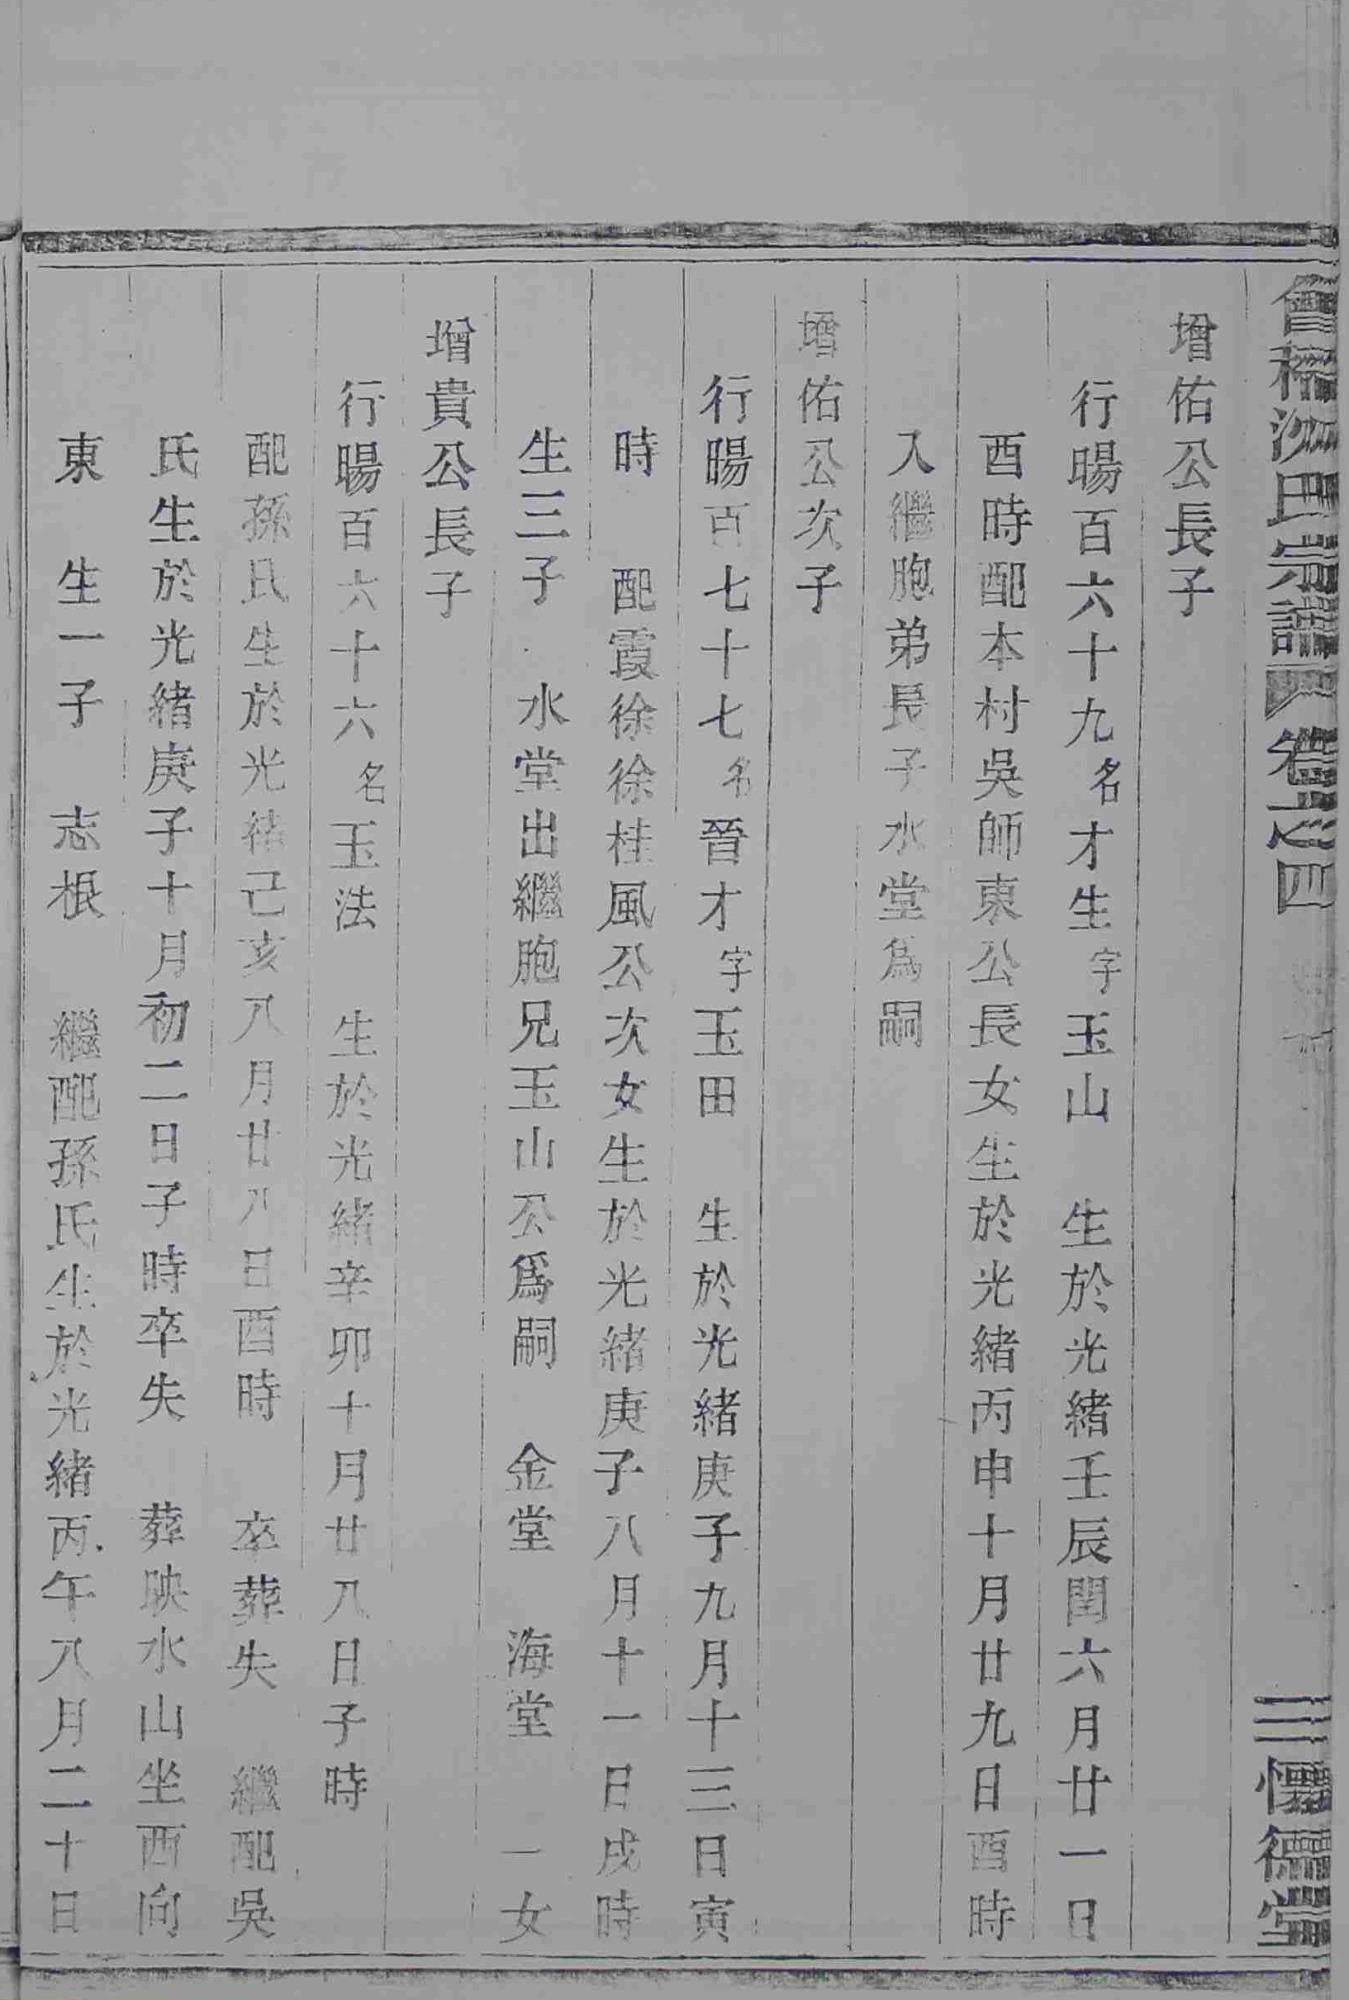 會稽沈氏宗譜 卷之四 三 懷德堂
增佑公長子
行暘百六十九名才生字玉山 生於光緒壬辰閏六月廿一日
酉時配本村吳師東公長女生於光緒丙申十月廿九日酉時
入繼胞弟長子水堂爲嗣
增佑公次子
行暘百七十七名晉才字玉田 生於光緒庚子九月十三日寅
時 配霞徐徐桂風公次女生於光緒庚子八月十一日戌時
生三子 水堂出繼胞兄玉山公爲嗣 金堂 海堂 一女
增貴公長子
行暘百六十六名玉法 生於光緒辛卯十月廿八日子時
配孫氏生於光緒己亥八月廿八日酉時 卒葬失 繼配吳
氏生於光緒庚子十月初二日子時卒失 葬映水山坐西向
東 生一子 志根 繼配孫氏生於光緒丙午八月二十日